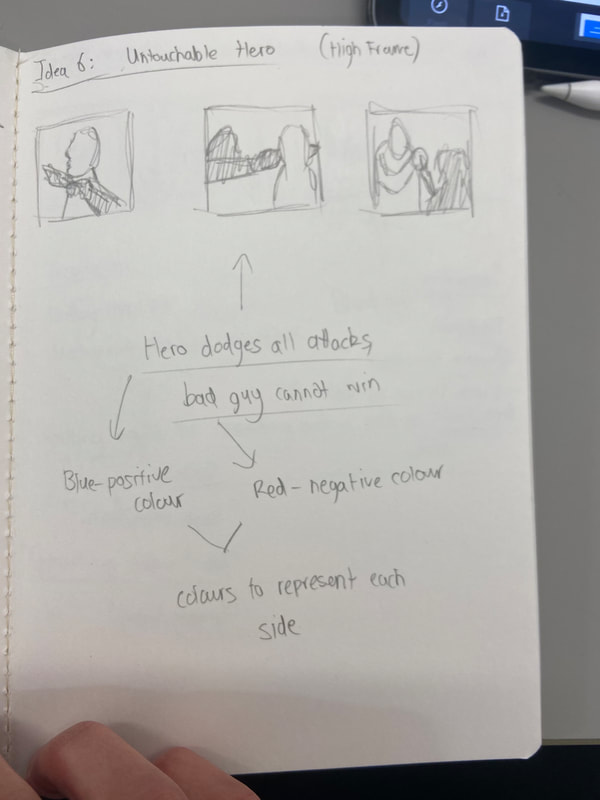 Idea 6: Untouchable Hero (High Frame)
Hero dodges all attacks,
bad guy cannot win
Blue-positive
colour
Red-negative colour
colours to represent each
side